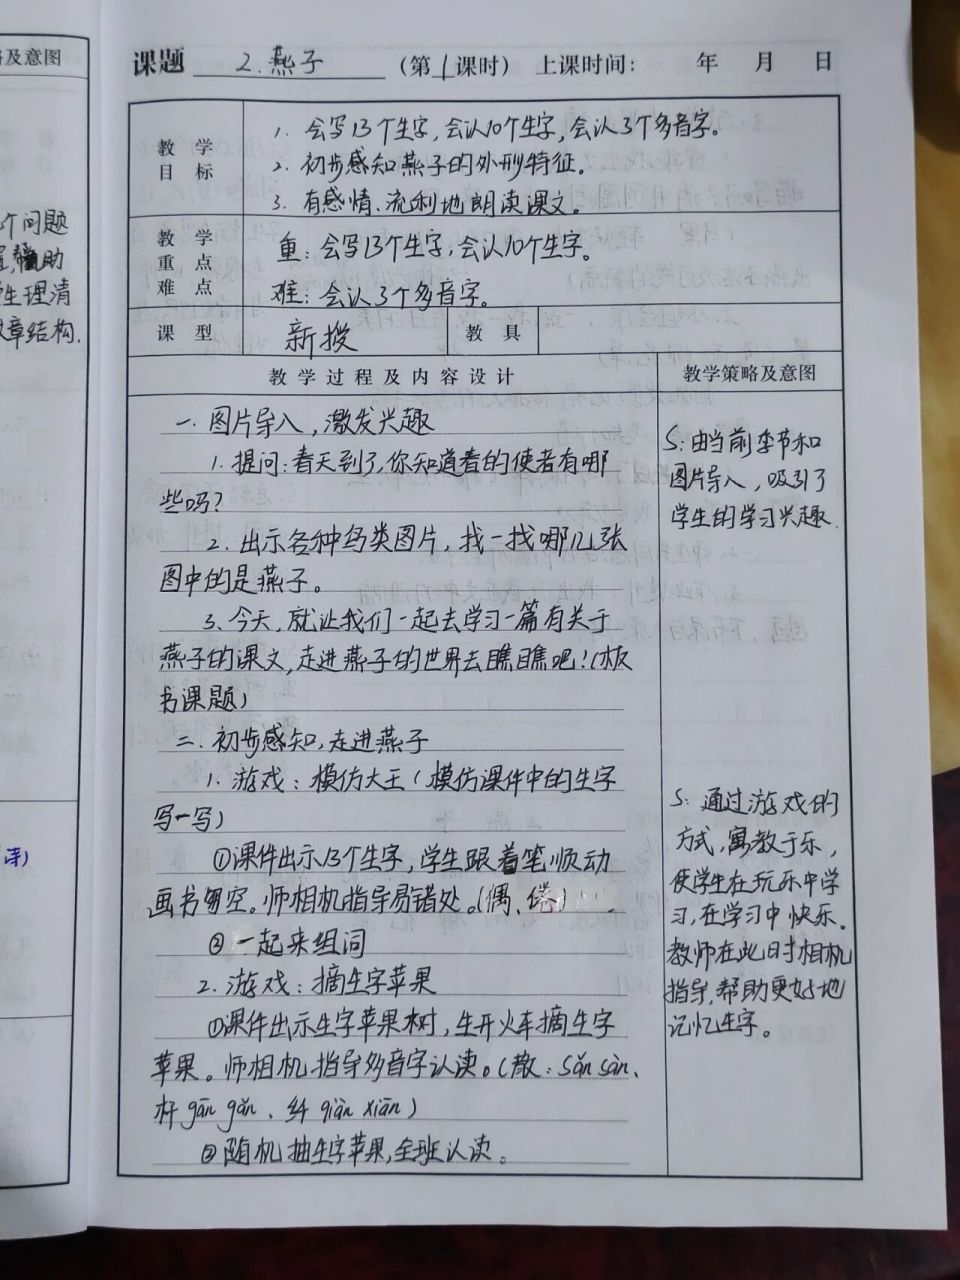 略及意图
个问题
帮助
生理清
文章结构.
译)
课题 2.燕子 (第1课时) 上课时间: 年 月 日
教学目标
1. 会写13个生字,会认10个生字,会认3个多音字。
2. 初步感知燕子的外形特征。
3. 有感情、流利地朗读课文。
教学重点难点
重:会写13个生字,会认10个生字。
难:会认3个多音字。
课型 新授 教具
教学过程及内容设计 教学策略及意图
一.图片导入,激发兴趣
1.提问:春天到了,你知道春的使者有哪
些吗?
2.出示各种鸟类图片,找一找哪几张
图中的是燕子。
3.今天,就让我们一起去学习一篇有关于
燕子的课文,走进燕子的世界去瞧瞧吧!(板
书课题)
二.初步感知,走进燕子
1.游戏:模仿大王(模仿课件中的生字
写一写)
①课件出示13个生字,学生跟着笔顺动
画书写空。师相机指导易错处。(偶、倦)
②一起来组词
2.游戏:摘生字苹果
①课件出示生字苹果树,生开火车摘生字
苹果。师相机指导多音字认读。(散:sǎn sàn、
杆 gān gǎn、纤 qiàn xiān)
②随机抽生字苹果,全班认读。
S:由当前季节和
图片导入,吸引了
学生的学习兴趣.
S:通过游戏的
方式,寓教于乐,
使学生在玩乐中学
习,在学习中快乐.
教师在此时相机
指导,帮助更好地
记忆生字。